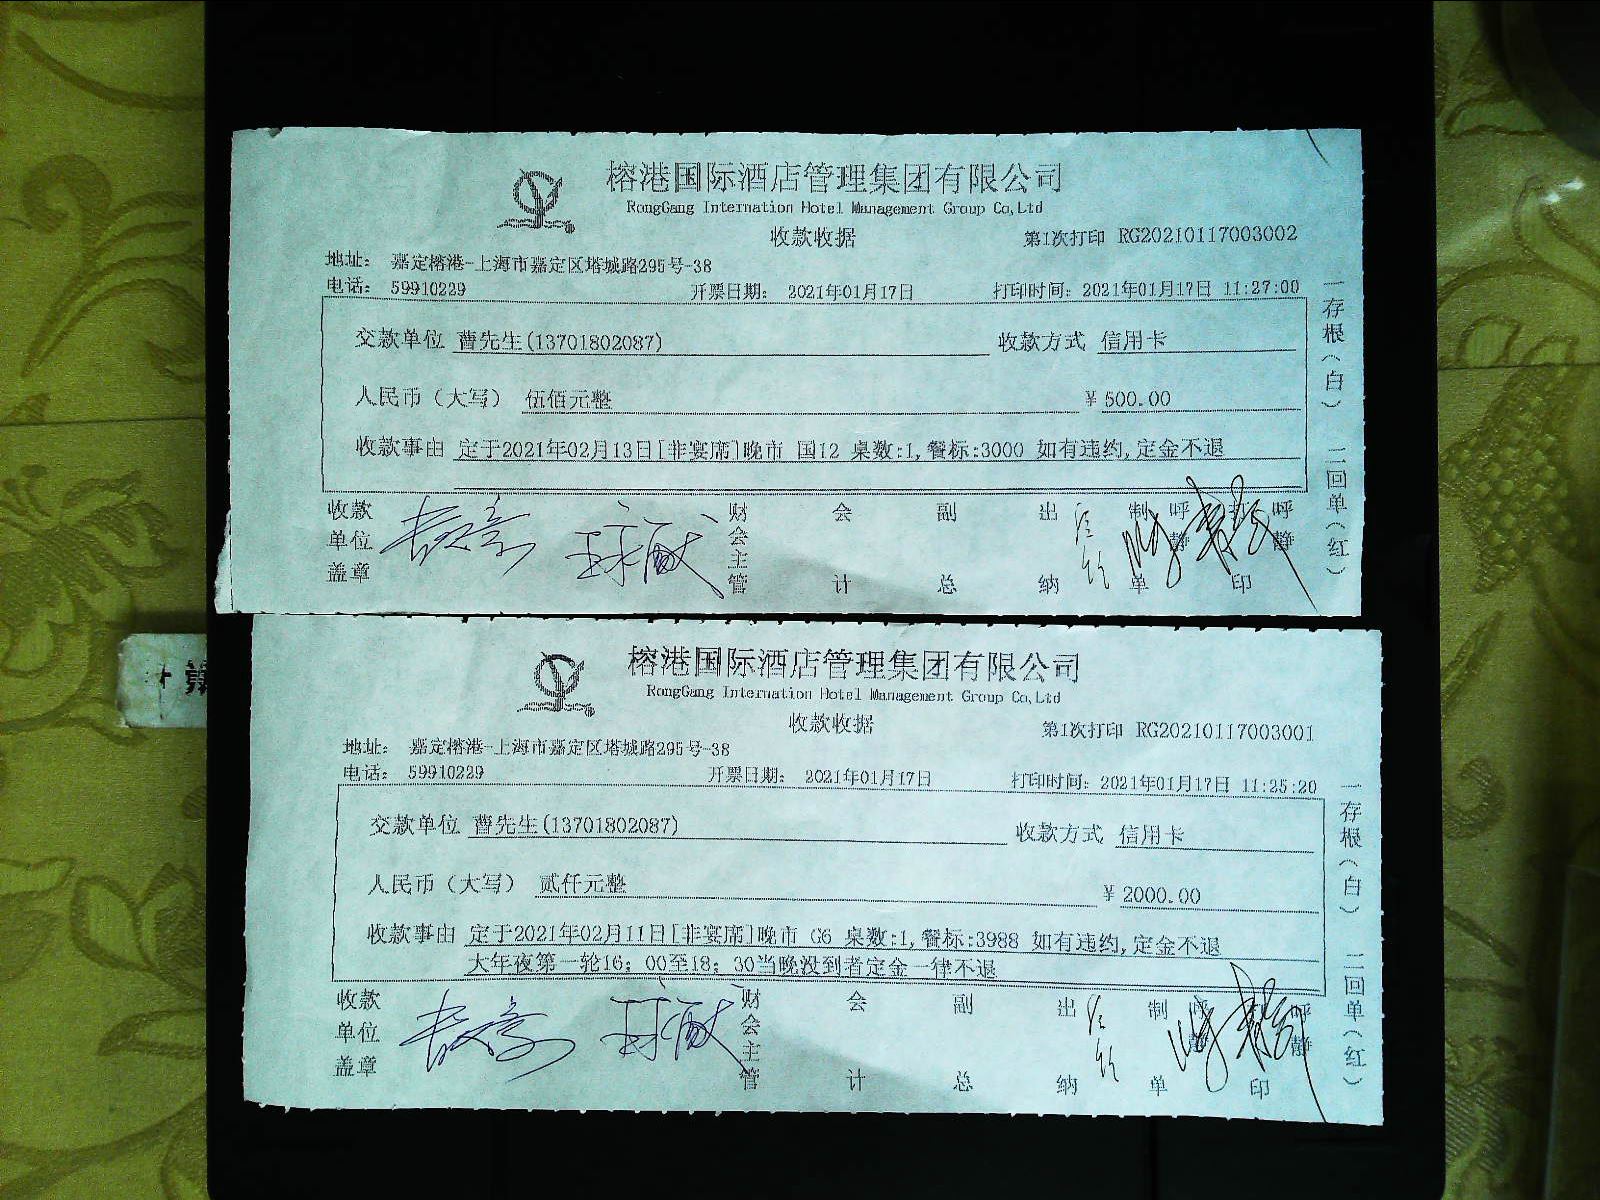 榕港国际酒店管理集团有限公司
RongGang Internation Hotel Management Group Co,Ltd
收款收据
第1次打印 RG20210117003002
地址: 嘉定榕港-上海市嘉定区塔城路295号-38
电话: 59910229 开票日期: 2021年01月17日 打印时间: 2021年01月17日 11:27:00
交款单位 曹先生(13701802087) 收款方式 信用卡
人民币(大写) 伍佰元整 ¥ 500.00
收款事由 定于2021年02月13日[非宴席]晚市 国12 桌数:1,餐标:3000 如有违约,定金不退
收款单位盖章 财会主管 会计 副总 出纳 制单 呼静 打印 呼静
一存根(白) 二回单(红)
榕港国际酒店管理集团有限公司
RongGang Internation Hotel Management Group Co,Ltd
收款收据
第1次打印 RG20210117003001
地址: 嘉定榕港-上海市嘉定区塔城路295号-38
电话: 59910229 开票日期: 2021年01月17日 打印时间: 2021年01月17日 11:25:20
交款单位 曹先生(13701802087) 收款方式 信用卡
人民币(大写) 贰仟元整 ¥ 2000.00
收款事由 定于2021年02月11日[非宴席]晚市 G6 桌数:1,餐标:3988 如有违约,定金不退
大年夜第一轮16: 00至18: 30当晚没到者定金一律不退
收款单位盖章 财会主管 会计 副总 出纳 制单 呼静 打印 呼静
一存根(白) 二回单(红)